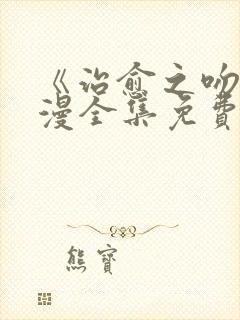 《治愈之吻
漫全集免费
熊宝